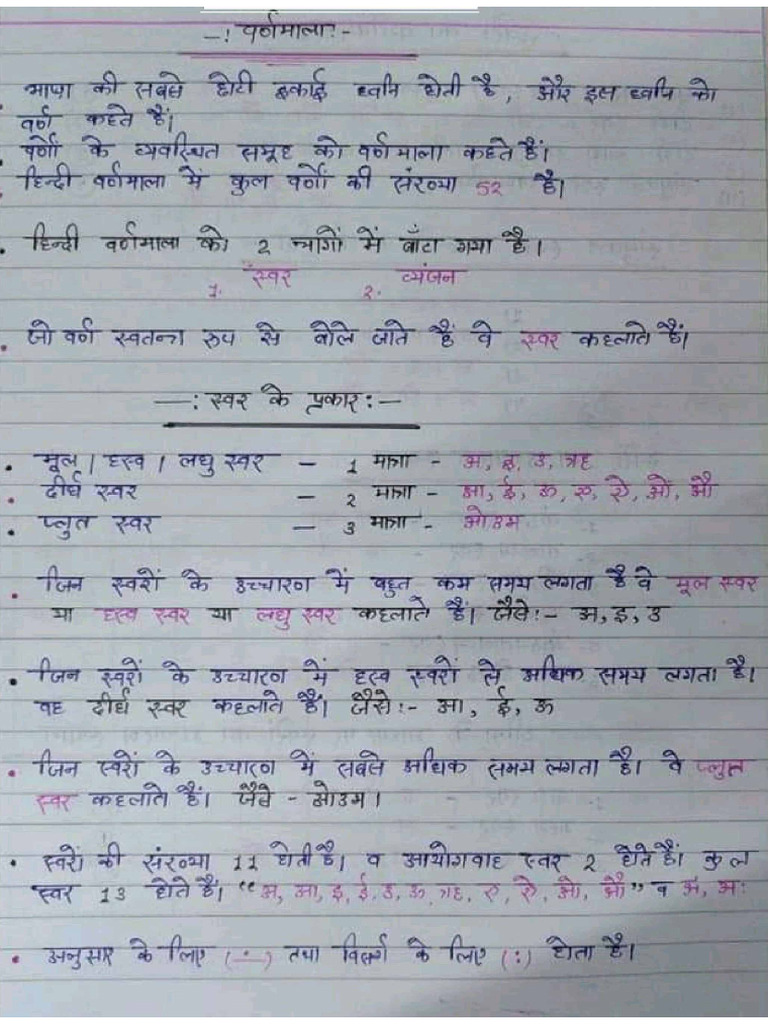 -: वर्णमाला:-
भाषा की सबसे छोटी इकाई ध्वनि होती है, और इस ध्वनि को
वर्ण कहते हैं।
वर्णों के व्यवस्थित समूह को वर्णमाला कहते हैं।
हिन्दी वर्णमाला में कुल वर्णों की संख्या 52 है।
हिन्दी वर्णमाला को 2 भागों में बाँटा गया है।
1. स्वर 2. व्यंजन
जो वर्ण स्वतन्त्र रुप से बोले जाते हैं वे स्वर कहलाते हैं।
—: स्वर के प्रकार:—
मूल / ह्स्व / लघु स्वर – 1 मात्रा - अ, इ, उ, ऋ
दीर्घ स्वर – 2 मात्रा - आ, ई, ऊ, ए, ऐ, ओ, औ
प्लुत स्वर – 3 मात्रा - ओउम
जिन स्वरों के उच्चारण में बहुत कम समय लगता है वे मूल स्वर
या ह्स्व स्वर या लघु स्वर कहलाते हैं। जैसे:- अ, इ, उ
जिन स्वरों के उच्चारण में ह्स्व स्वरों से अधिक समय लगता है।
वह दीर्घ स्वर कहलाते हैं। जैसे:- आ, ई, ऊ
जिन स्वरों के उच्चारण में सबसे अधिक समय लगता है। वे प्लुत
स्वर कहलाते हैं। जैसे - ओउम।
स्वरों की संख्या 11 होती है। व आयोगवाह स्वर 2 होते हैं। कुल
स्वर 13 होते हैं। “अ, आ, इ, ई, उ, ऊ, ऋ, ए, ऐ, ओ, औ” व अं, अः
अनुसार के लिए (∸) तथा विसर्ग के लिए (:) होता है।